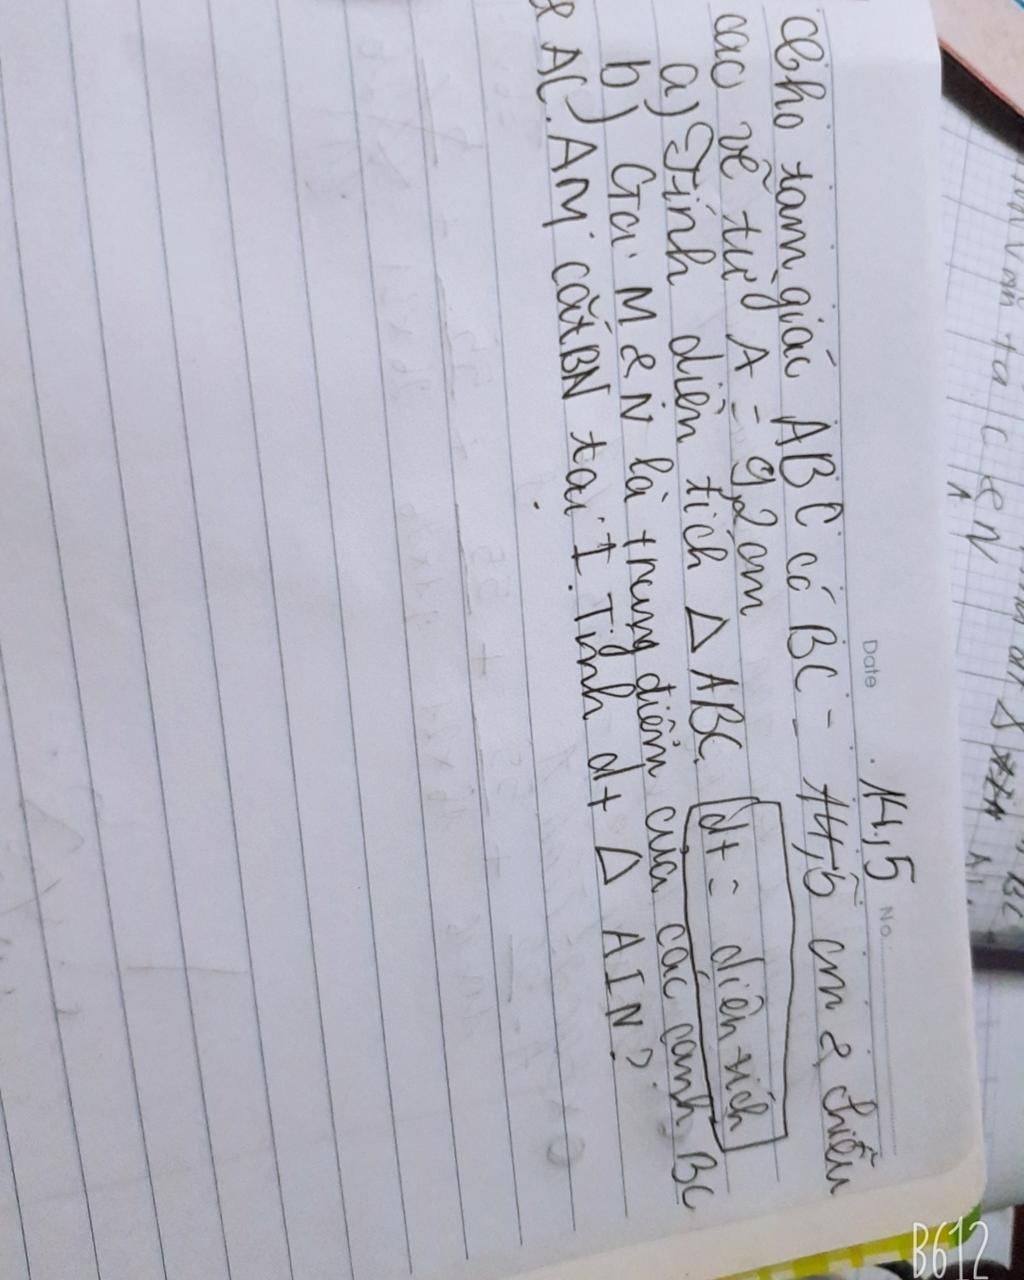 Date
No.
14,5
Cho tam giác ABC có BC = 14,5 cm & chiều
cao vẽ từ A = 9,2 cm
a) Tính diện tích Δ ABC. dt = diện tích
b) Gọi M & N là trung điểm của các cạnh BC
& AC. AM cắt BN tại I. Tính dt Δ AIN?
ta C
N
A
B612